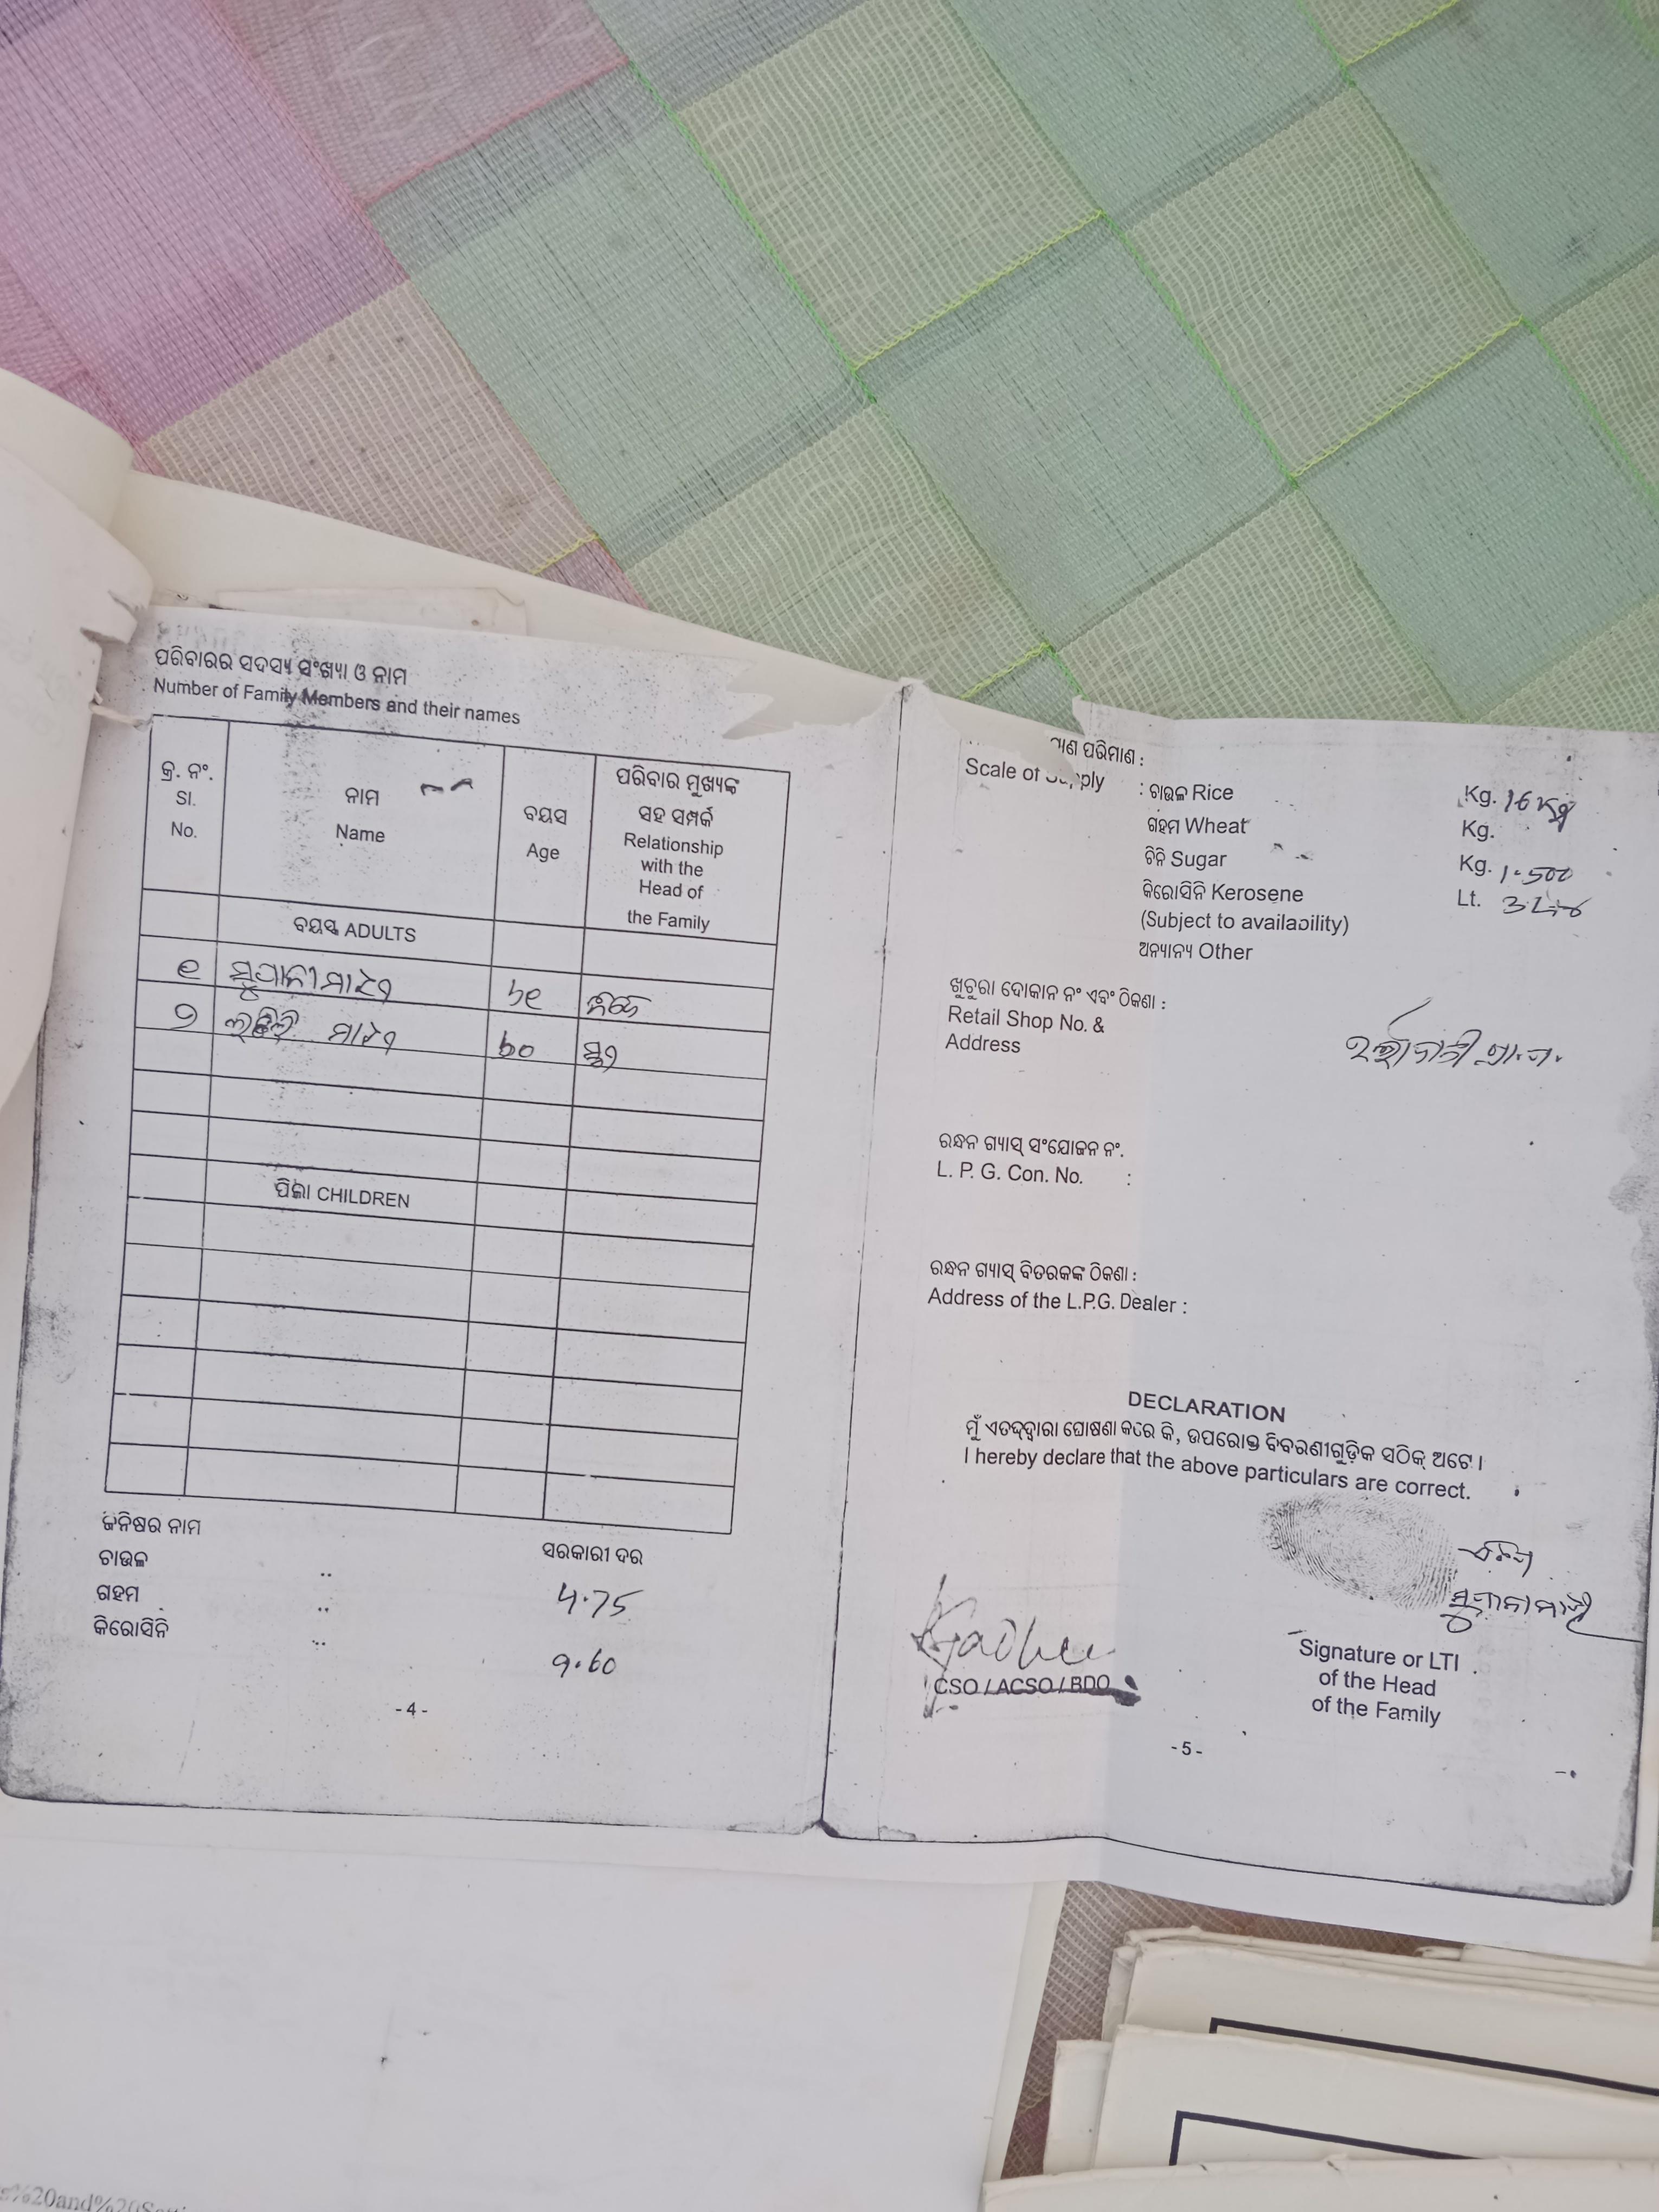 ପରିବାରର ସଦସ୍ୟ ସଂଖ୍ୟା ଓ ନାମ
Number of Family Members and their names
କ୍ର. ନଂ.
Sl.
No.
ନାମ
Name
ବୟସ
Age
ପରିବାର ମୁଖ୍ୟଙ୍କ
ସହ ସମ୍ପର୍କ
Relationship
with the
Head of
the Family
ବୟସ୍କ ADULTS
୧
୨ ୬୦
ପିଲା CHILDREN
ଜନିଷର ନାମ ସରକାରୀ ଦର
ଚାଉଳ .. 4.75
ଗହମ ..
କିରୋସିନି .. 9.60
- 4 -
ପରିମାଣ :
Scale of
: ଚାଉଳ Rice Kg. 16 Kg
ଗହମ Wheat Kg.
ଚିନି Sugar Kg. 1.500
କିରୋସିନି Kerosene Lt.
(Subject to availability)
ଅନ୍ୟାନ୍ୟ Other
ଖୁଚୁରା ଦୋକାନ ନଂ ଏବଂ ଠିକଣା :
Retail Shop No. &
Address
ରନ୍ଧନ ଗ୍ୟାସ୍ ସଂଯୋଜନ ନଂ.
L. P. G. Con. No. :
ରନ୍ଧନ ଗ୍ୟାସ୍ ବିତରକଙ୍କ ଠିକଣା :
Address of the L.P.G. Dealer :
DECLARATION
ମୁଁ ଏତଦ୍‌ଦ୍ୱାରା ଘୋଷଣା କରେ କି, ଉପରୋକ୍ତ ବିବରଣୀଗୁଡ଼ିକ ସଠିକ୍ ଅଟେ ।
I hereby declare that the above particulars are correct.
CSO / ACSO / BDO
Signature or LTI
of the Head
of the Family
- 5 -